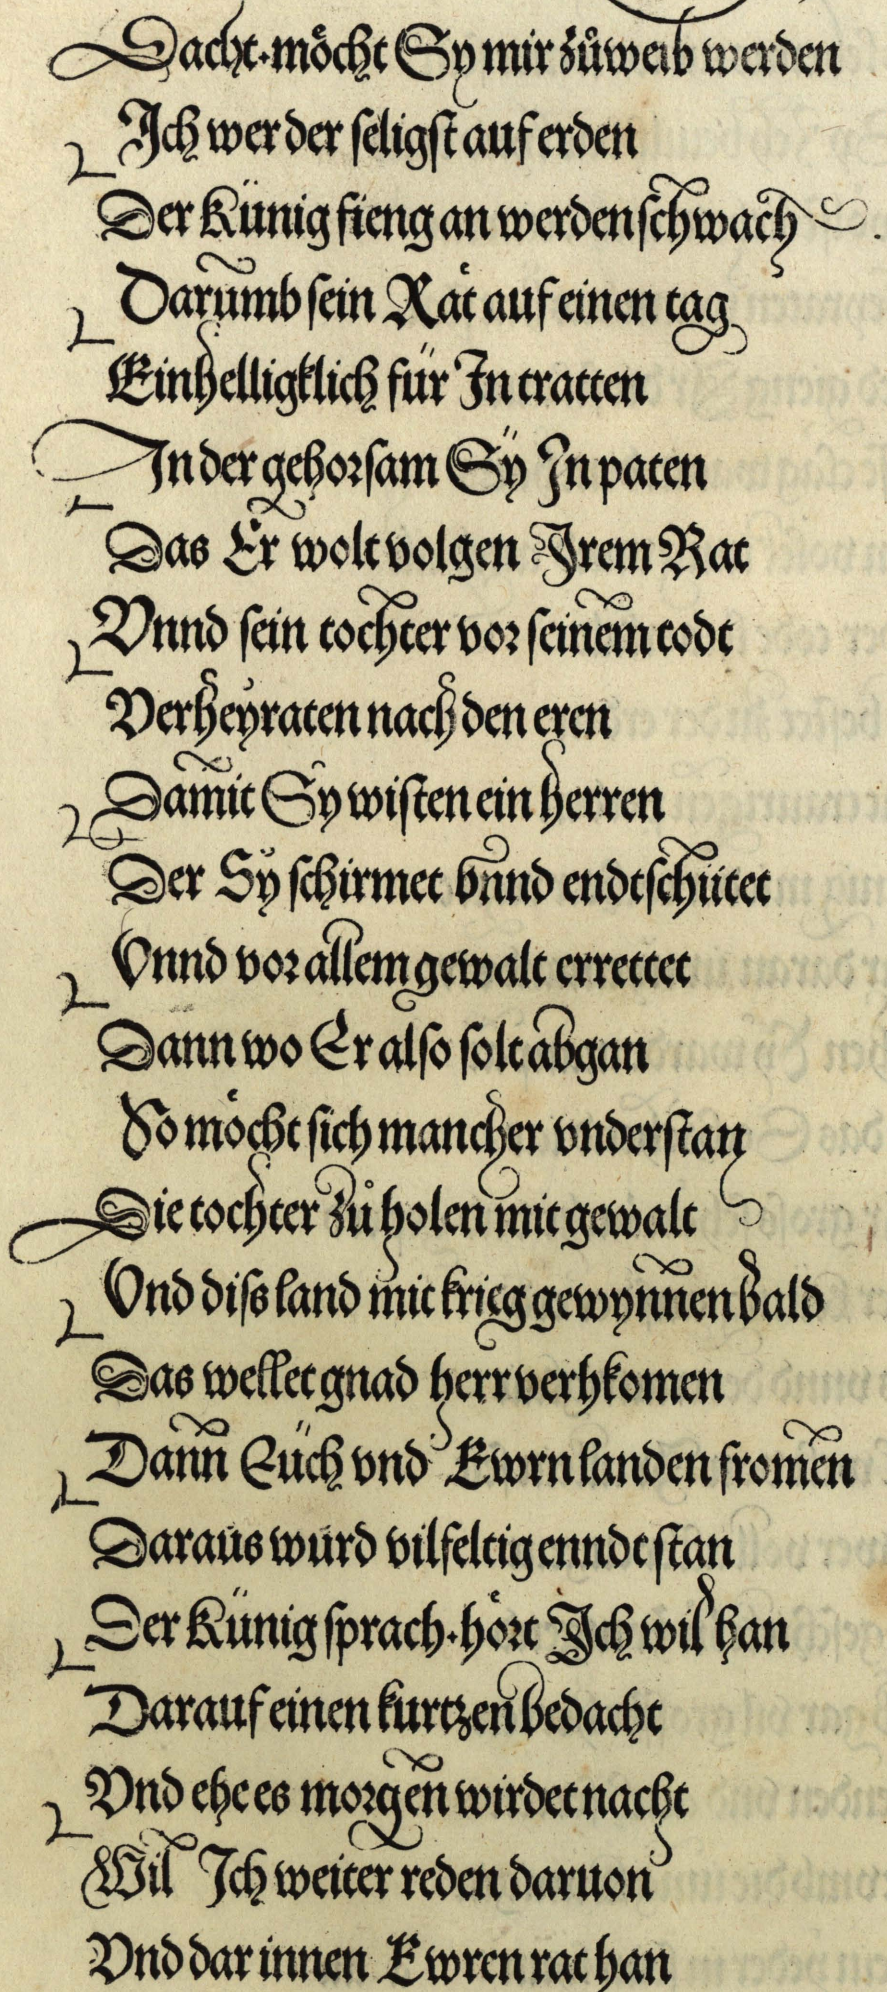 Dacht·möcht Sy mir zůweib werden
Ich wer der seligst auf erden
Der Künig fieng an werden schwach
Darumb sein Rät auf einen tag
Einhelligklich für In tratten
In der gehorsam Sÿ In paten
Das Er wolt volgen Irem Rat
Vnnd sein tochter vor seinem todt
Verheyraten nach den eren
Damit Sy wisten ein herren
Der Sÿ schirmet vnnd endtschütet
Vnnd vor allem gewalt errettet
Dann wo Er also solt abgan
So möcht sich mancher vnderstan
Die tochter zů holen mit gewalt
Vnd diss land mit krieg gewynnen bald
Das wellet gnad herr verhkomen
Dann Eüch vnd Ewrn landen fromen
Daraus wurd vilfeltig enndtstan
Der Künig sprach·hört Ich wil han
Darauf einen kurtzen bedacht
Vnd ehe es morgen wirdet nacht
Wil Ich weiter reden daruon
Vnd dar innen Ewren rat han